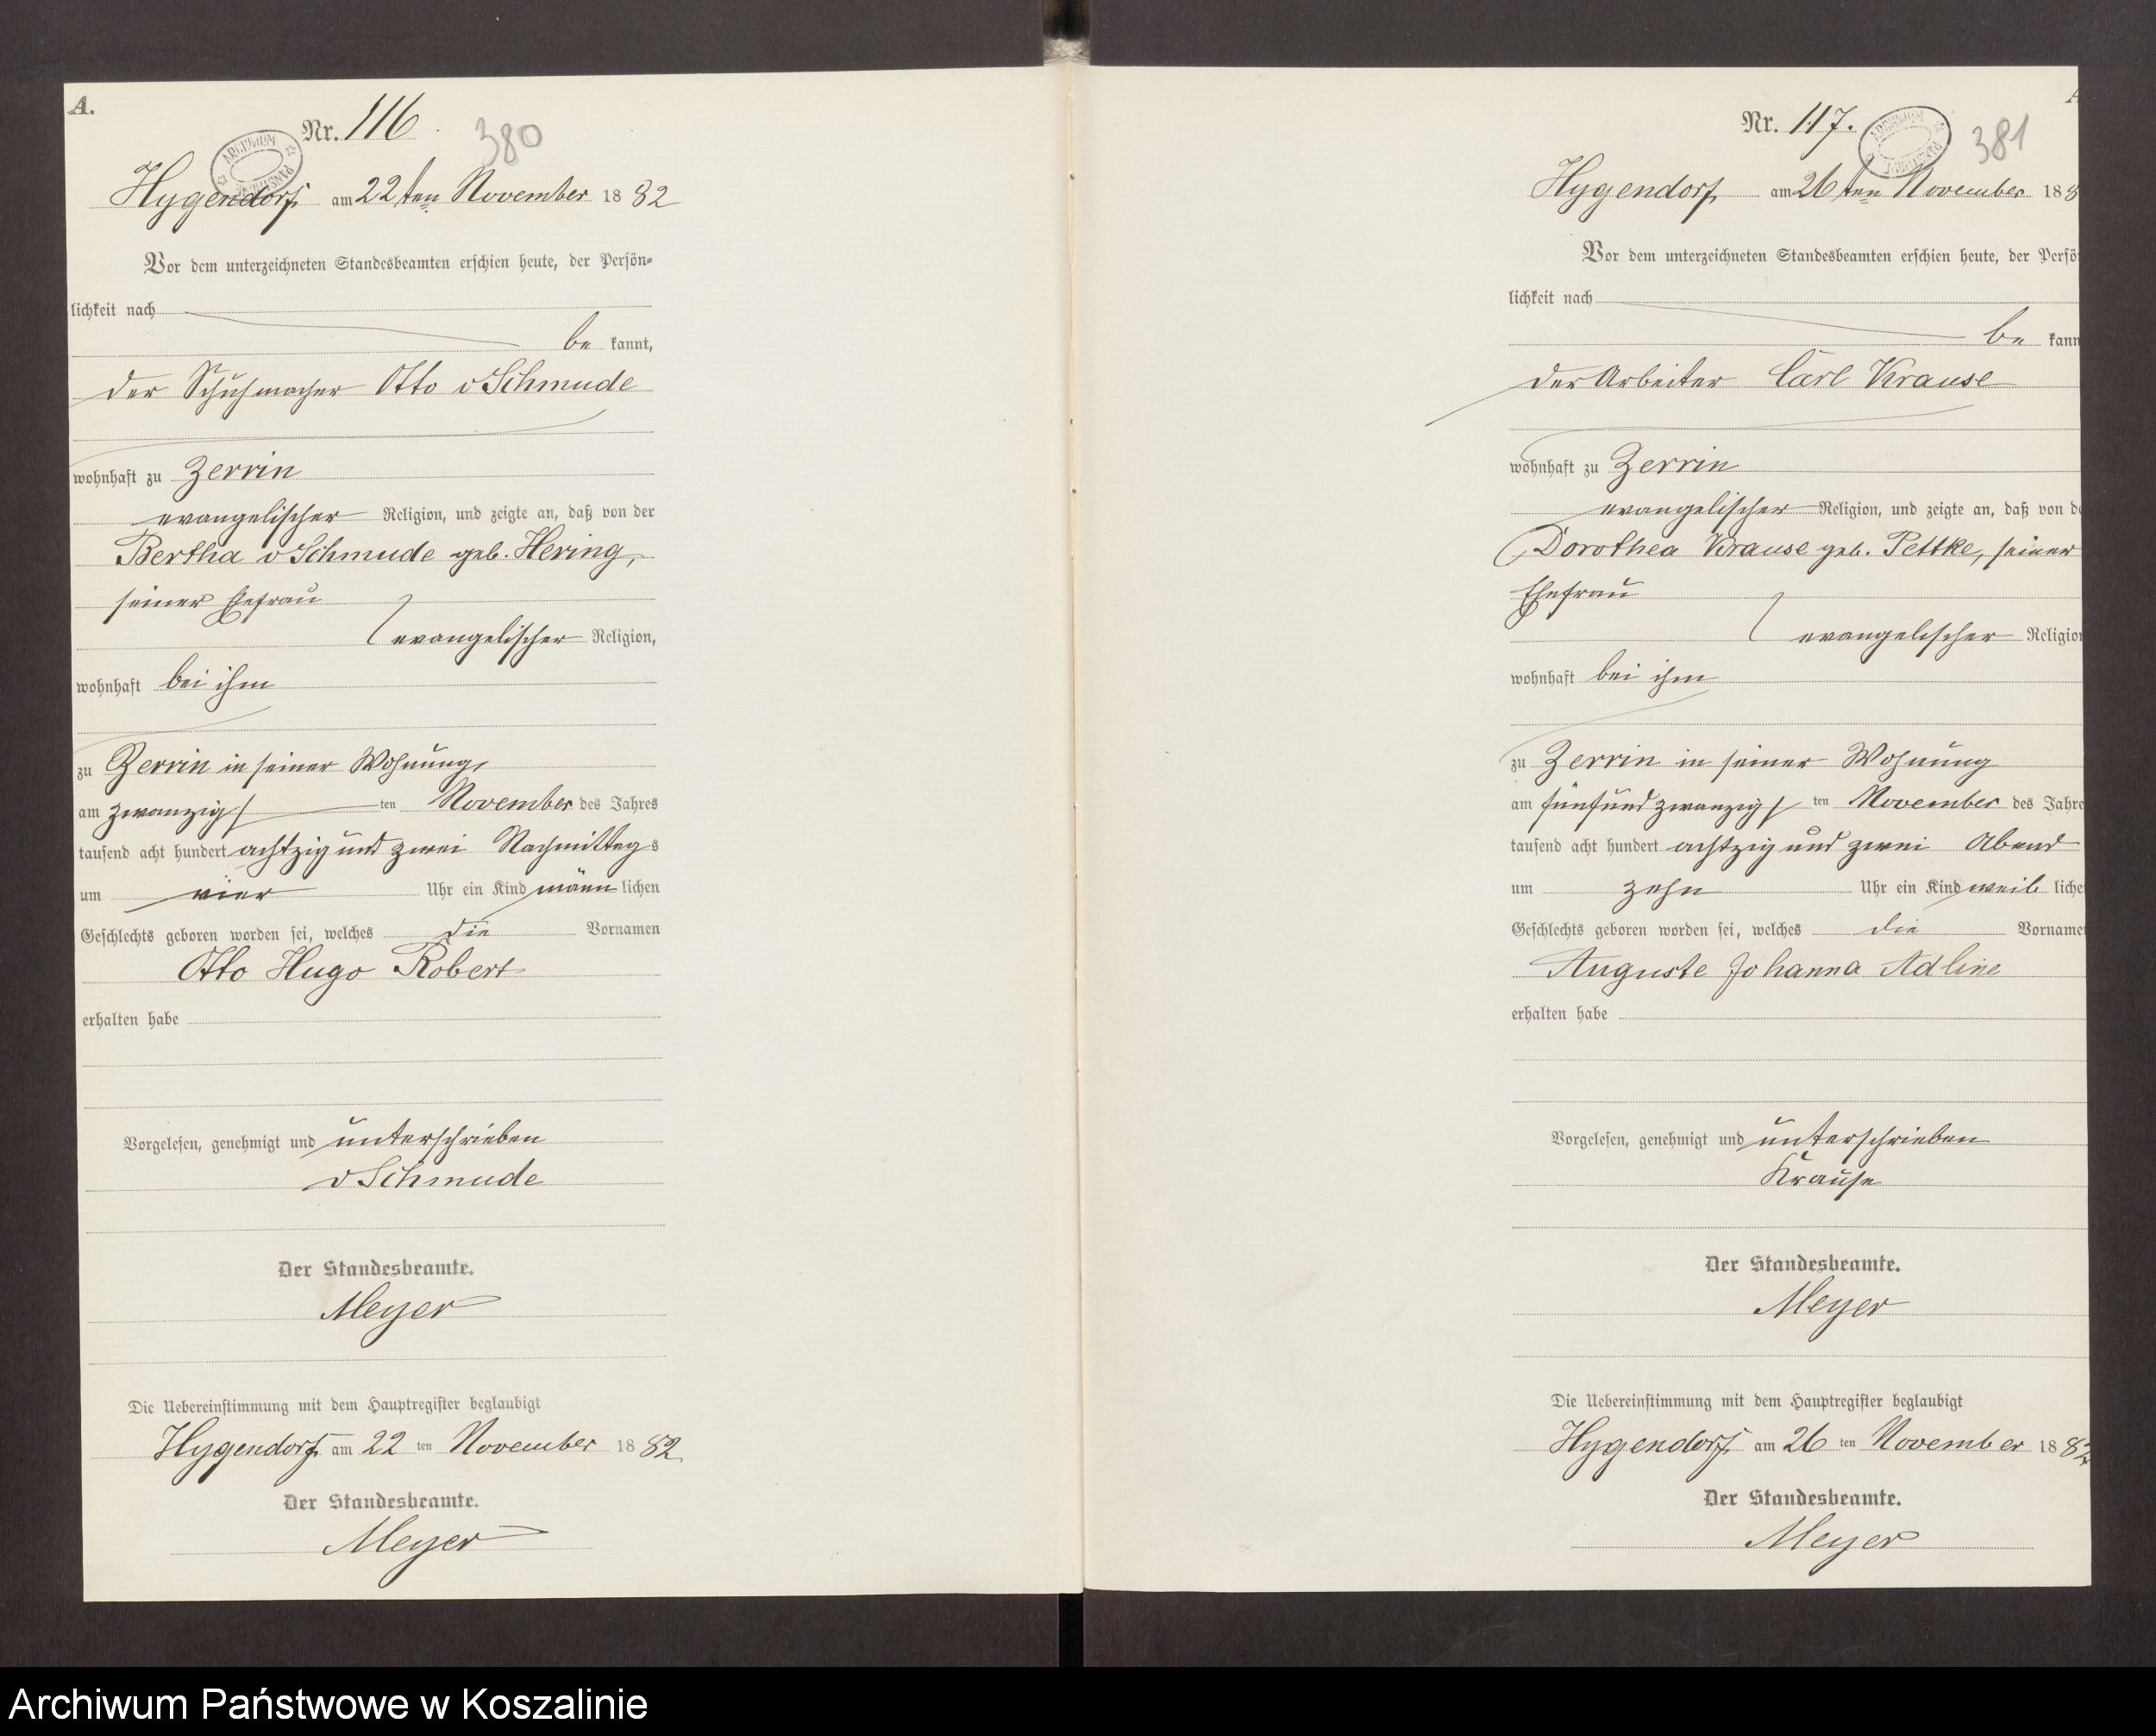 A.
Nr. 116
380
ARCHIWUM PAŃSTWOWE
Hygendorf am 22ten November 1882
Vor dem unterzeichneten Standesbeamten erschien heute, der Persön=
lichkeit nach
be kannt,
der Schuhmacher Otto v Schmude
wohnhaft zu Zerrin
evangelischer Religion, und zeigte an, daß von der
Bertha v Schmude geb. Hering,
seiner Ehefrau
evangelischer Religion,
wohnhaft bei ihm
zu Zerrin in seiner Wohnung,
am zwanzigs ten November des Jahres
tausend acht hundert achtzig und zwei Nachmittags
um vier Uhr ein Kind männ lichen
Geschlechts geboren worden sei, welches die Vornamen
Otto Hugo Robert
erhalten habe
Vorgelesen, genehmigt und unterschrieben
v Schmude
Der Standesbeamte.
Meyer
Die Uebereinstimmung mit dem Hauptregister beglaubigt
Hygendorf am 22 ten November 1882
Der Standesbeamte.
Meyer
Nr. 117.
381
Hygendorf am 26ten November 188
Vor dem unterzeichneten Standesbeamten erschien heute, der Persö
lichkeit nach
be kann
der Arbeiter Carl Krause
wohnhaft zu Zerrin
evangelischer Religion, und zeigte an, daß von de
Dorothea Krause geb. Pettke, seiner
Ehefrau
evangelischer Religio
wohnhaft bei ihm
zu Zerrin in seiner Wohnung
am fünfundzwanzigs ten November des Jahre
tausend acht hundert achtzig und zwei Abend
um zehn Uhr ein Kind weib liche
Geschlechts geboren worden sei, welches die Vorname
Auguste Johanna Adline
erhalten habe
Vorgelesen, genehmigt und unterschrieben
Krause
Der Standesbeamte.
Meyer
Die Uebereinstimmung mit dem Hauptregister beglaubigt
Hygendorf am 26 ten November 1882
Der Standesbeamte.
Meyer
Archiwum Państwowe w Koszalinie